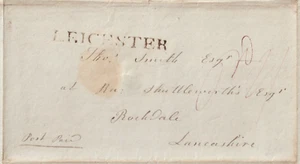 LEICESTER
Thos. Smith Esqr
at Shuttleworth's Esqr
Rochdale
Lancashire
Post Paid